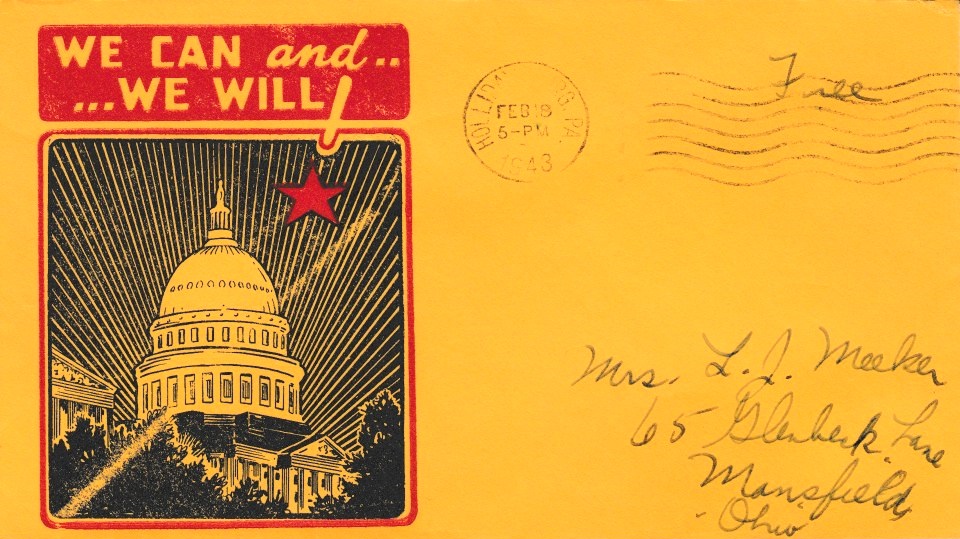 WE CAN and..
...WE WILL!
HOLLIDAYSBURG, PA.
FEB 18
5-PM
1943
Free
Mrs. L. J. Meeker
65 Glenbeck Lane
Mansfield,
Ohio